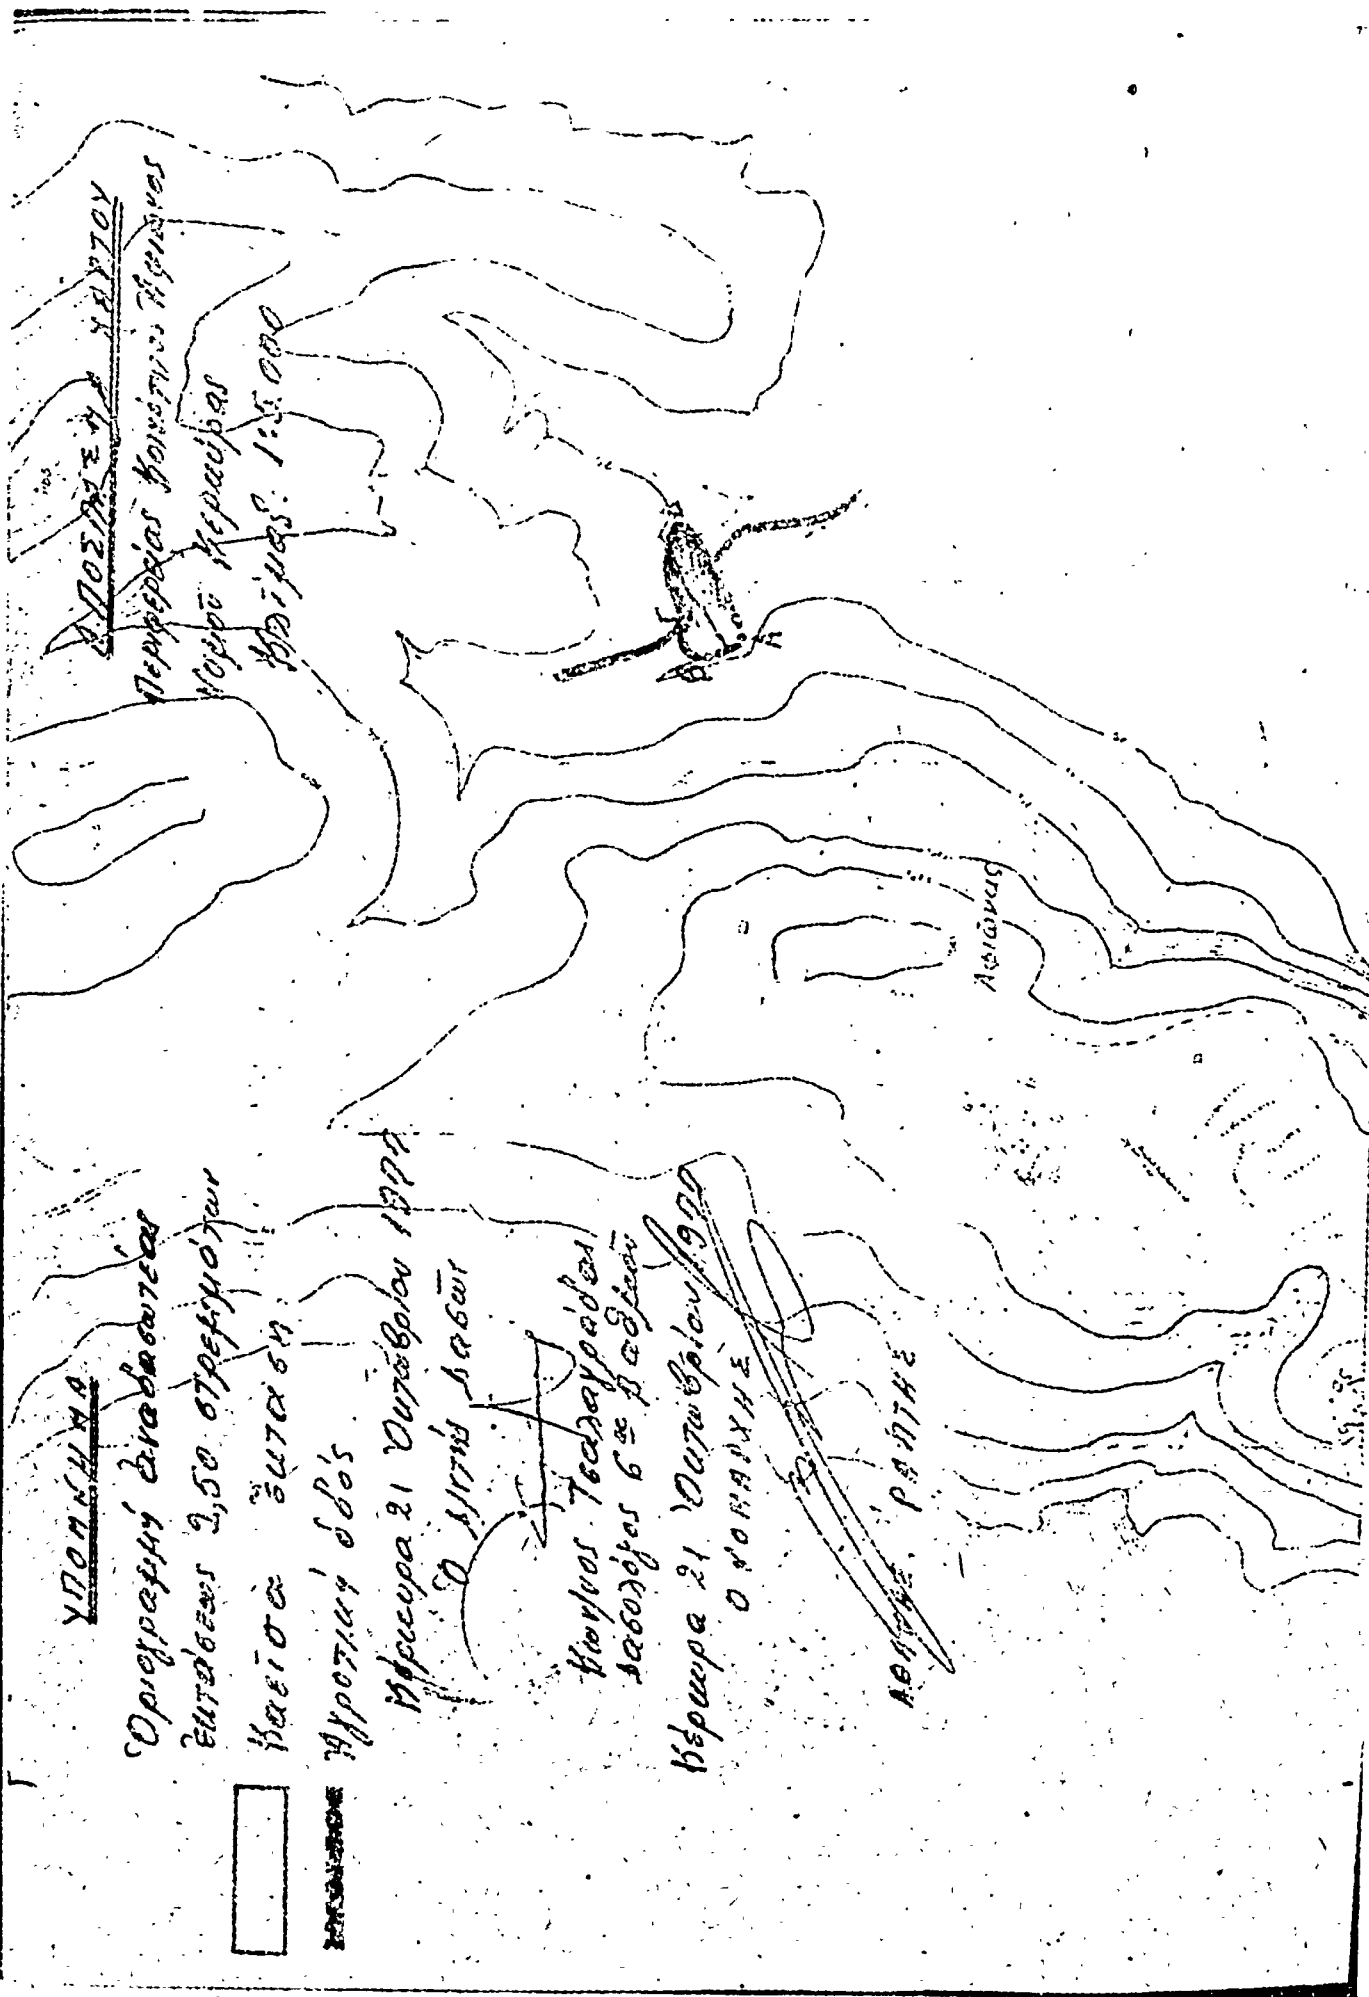 ΑΠΟΣΠΑΣΜΑ ΧΑΡΤΟΥ
Περιφερείας Κοινότητος Ἀφιῶνος
Νομοῦ Κερκύρας
Κλίμαξ: 1:5.000
ΥΠΟΜΝΗΜΑ
Ὁριογραμμή ἀναδασωτέας
ἐκτάσεως 2,50 στρεμμάτων
Καεῖσα ἔκταση
Ἀγροτική ὁδός
Κέρκυρα 21 Ὀκτωβρίου
Ὁ Δ/ντής Δασῶν
Κων/νος Τσαλαγράδας
Δασολόγος
Κέρκυρα 21 Ὀκτωβρίου
Ο ΝΟΜΑΡΧΗΣ
ΡΑΠΤΗΣ
Αφιώνας